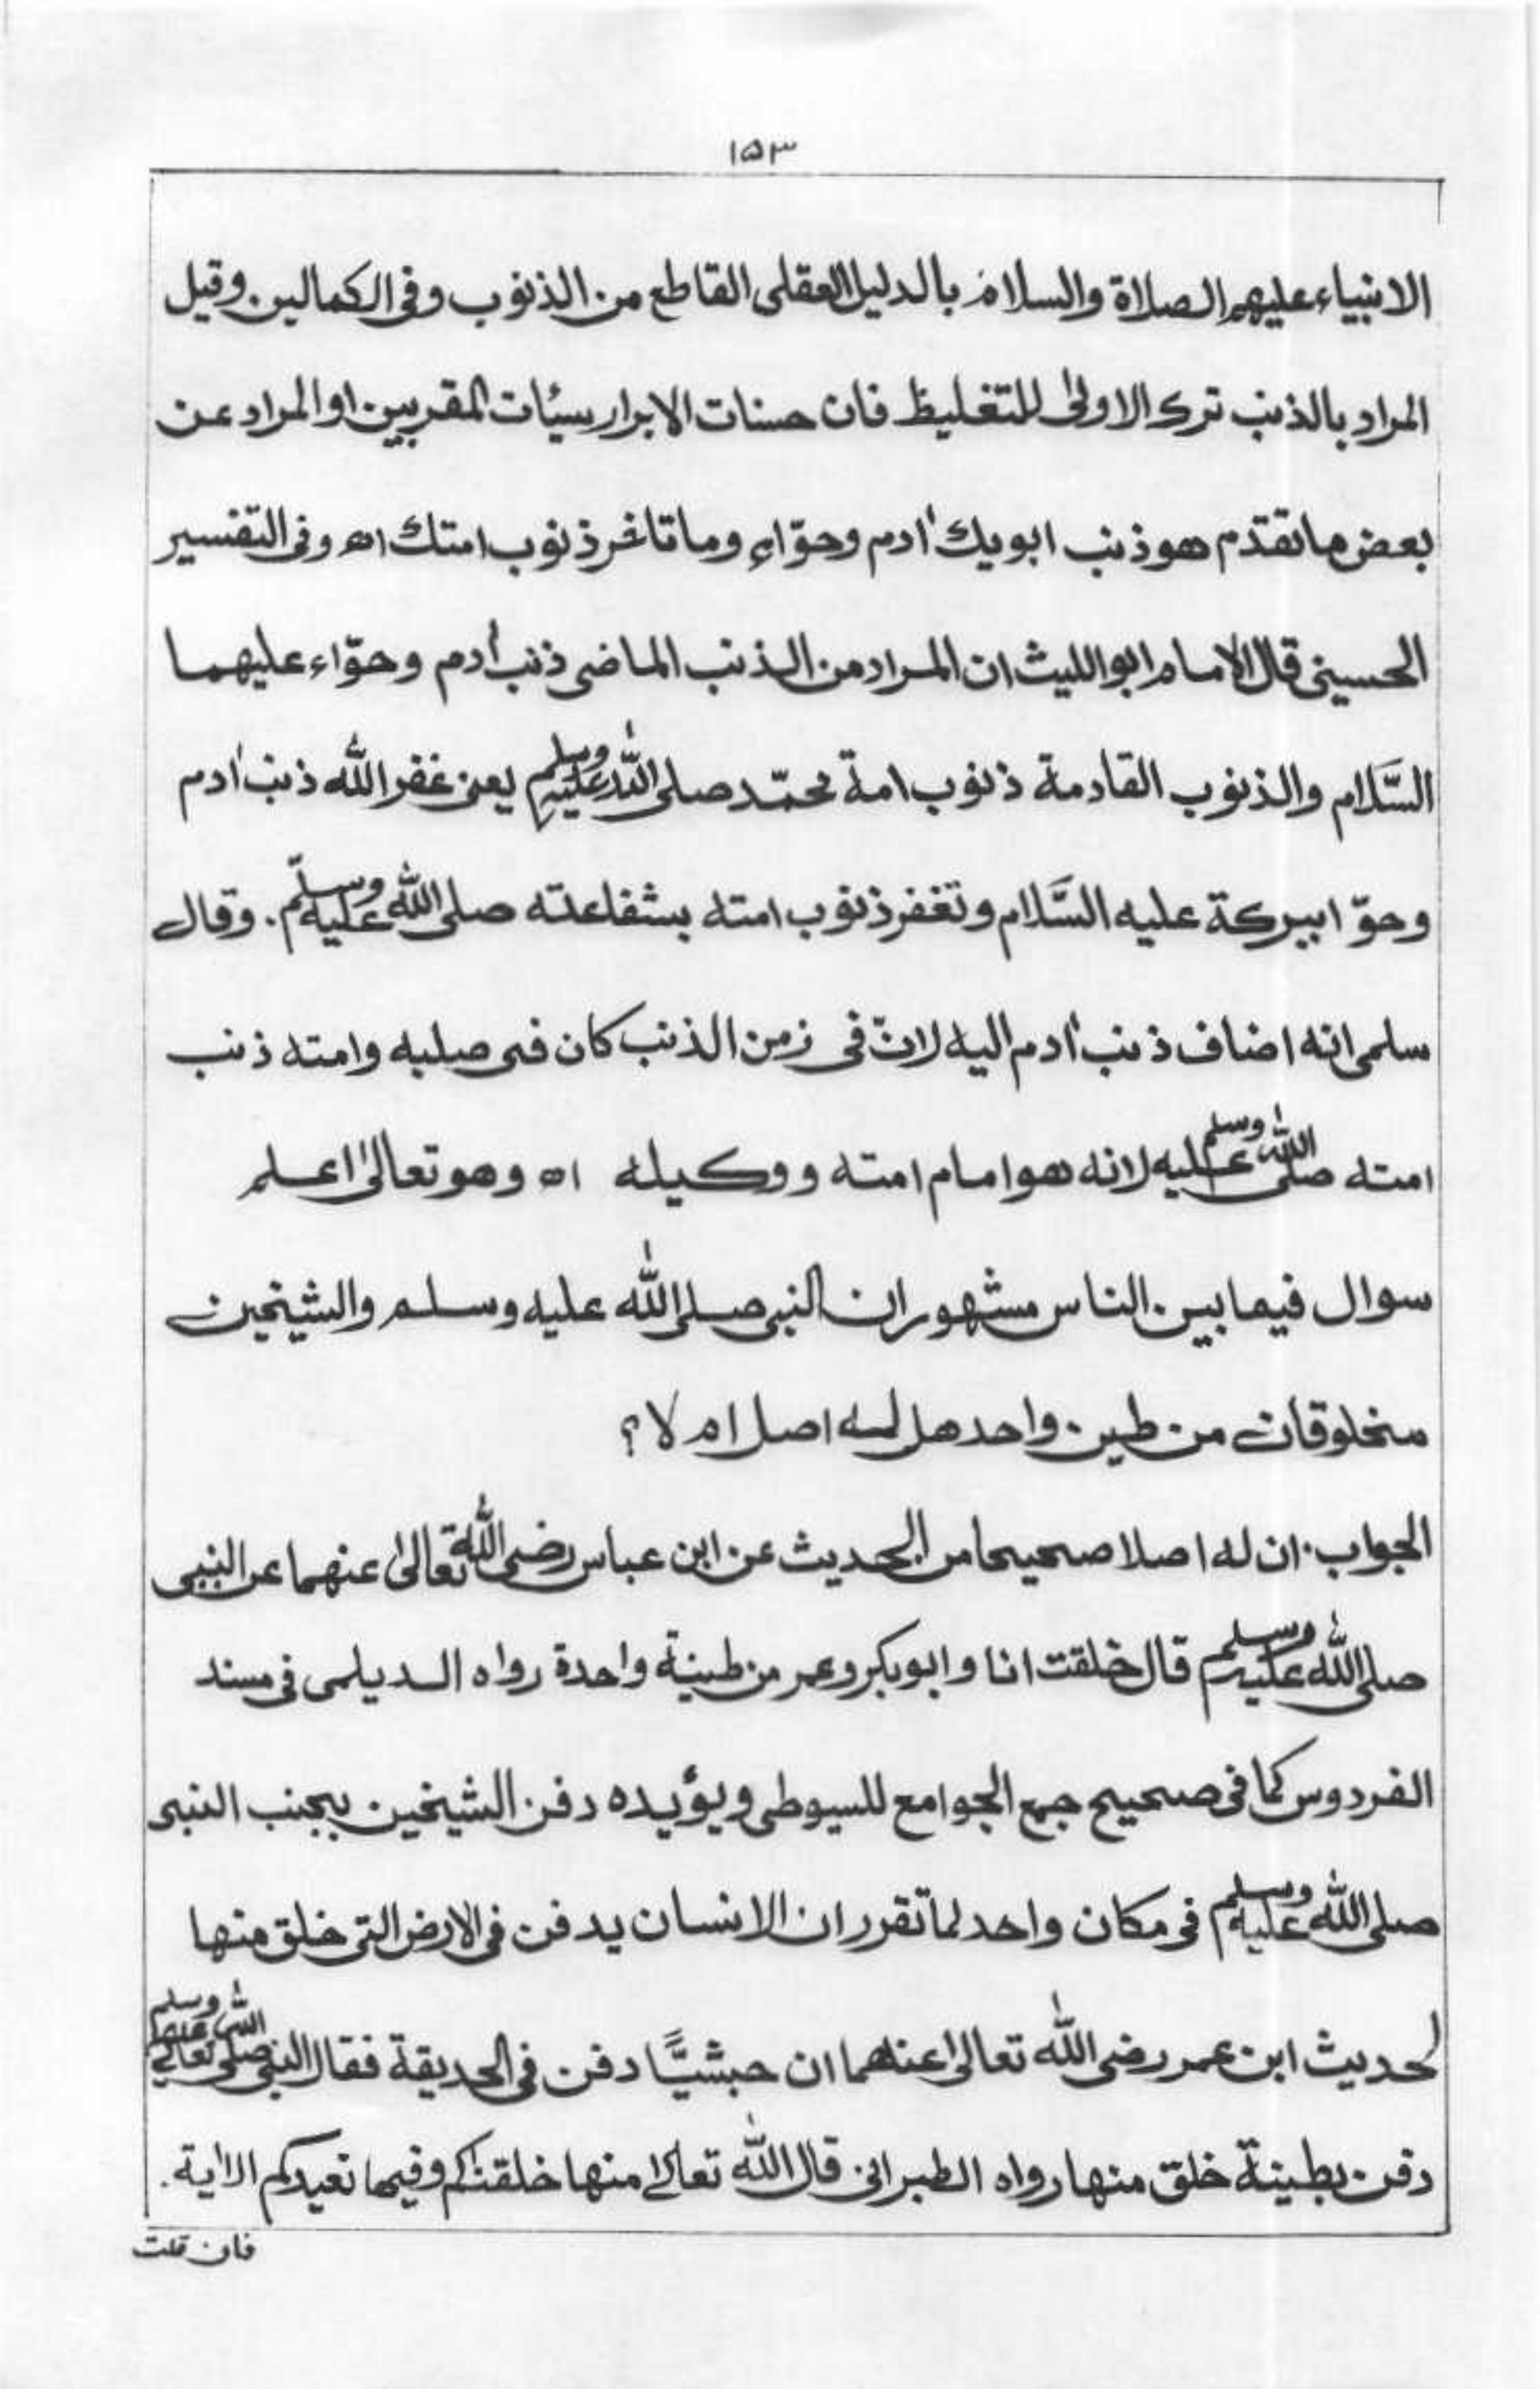 ١٥٣
الانبياء عليهم الصلاة والسلام بالدليل العقلى القاطع من الذنوب وفى الكمالين. وقيل
المراد بالذنب ترك الاولىٰ للتغليظ فان حسنات الابرار سيئات المقربين او المراد عن
بعض ما تقدّم هو ذنب ابويك اٰدم وحوّاء وما تاخر ذنوب امتك اھ وفى التفسير
الحسينى قال الامام ابوالليث ان المراد من الذنب الماضى ذنب اٰدم وحوّاء عليهما
السَّلام والذنوب القادمة ذنوب امة محمّد صلى الله عليه وسلم يعنى غفر الله ذنب اٰدم
وحوّا ببركة عليه السَّلام وتغفر ذنوب امته بشفاعته صلى الله عليه وسلّم. وقال
سلمى انه اضاف ذنب اٰدم اليه لانّ فى زمن الذنب كان فى صلبه وامته ذنب
امته صلى الله عليه وسلم لانه هو امام امته ووكيله اھ وهو تعالىٰ اعلم
سوال فيما بين الناس مشهور ان النبى صلى الله عليه وسلم والشيخين
مخلوقان من طين واحد هل له اصل ام لا؟
الجواب. ان له اصلا صحيحا من الحديث عن ابن عباس رضى الله تعالىٰ عنهما عن النبى
صلى الله عليه وسلم قال خلقت انا وابوبكر وعمر من طينة واحدة رواه الديلمى فى مسند
الفردوس كما فى صحيح جمع الجوامع للسيوطى ويؤيده دفن الشيخين بجنب النبى
صلى الله عليه وسلم فى مكان واحد لما تقرر ان الانسان يدفن فى الارض التى خلق منها
لحديث ابن عمر رضى الله تعالىٰ عنهما ان حبشيًّا دفن فى الحديقة فقال النبى صلى الله تعالى عليه وسلم
دفن بطينة خلق منها رواه الطبرانى قال الله تعالىٰ منها خلقنٰكم وفيها نعيدكم الاٰية.
فان قلت